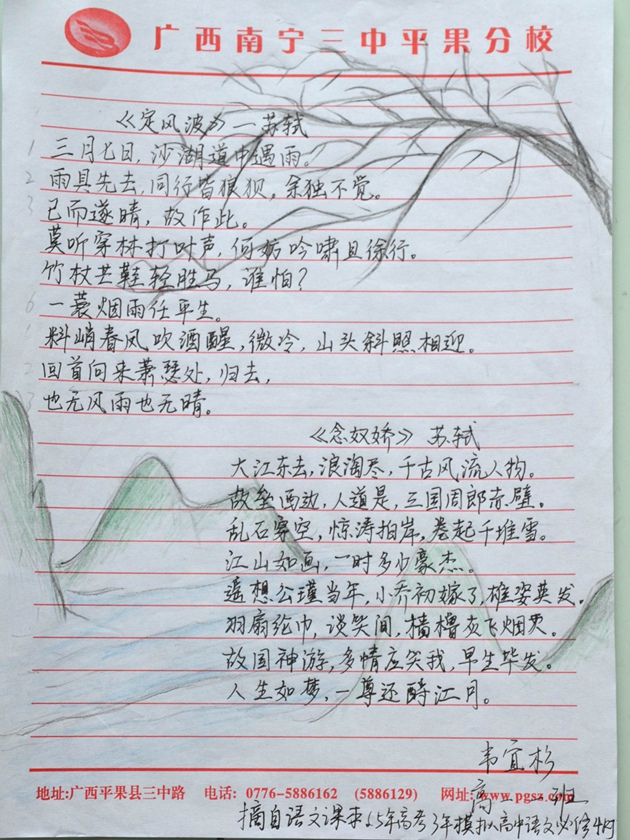 广西南宁三中平果分校
《定风波》—苏轼
1 三月七日，沙湖道中遇雨。
2 雨具先去，同行皆狼狈，余独不觉。
3 已而遂晴，故作此。
莫听穿林打叶声，何妨吟啸且徐行。
竹杖芒鞋轻胜马，谁怕？
6 一蓑烟雨任平生。
1 料峭春风吹酒醒，微冷，山头斜照相迎。
2 回首向来萧瑟处，归去，
3 也无风雨也无晴。
《念奴娇》 苏轼
大江东去，浪淘尽，千古风流人物。
故垒西边，人道是，三国周郎赤壁。
乱石穿空，惊涛拍岸，卷起千堆雪。
江山如画，一时多少豪杰。
遥想公瑾当年，小乔初嫁了，雄姿英发。
羽扇纶巾，谈笑间，樯橹灰飞烟灭。
故国神游，多情应笑我，早生华发。
人生如梦，一尊还酹江月。
韦宜杉
高 班
地址:广西平果县三中路 电话: 0776-5886162 (5886129) 网址:www.pgsz.c
摘自语文课本 5年高考3年模拟 高中语文必修4